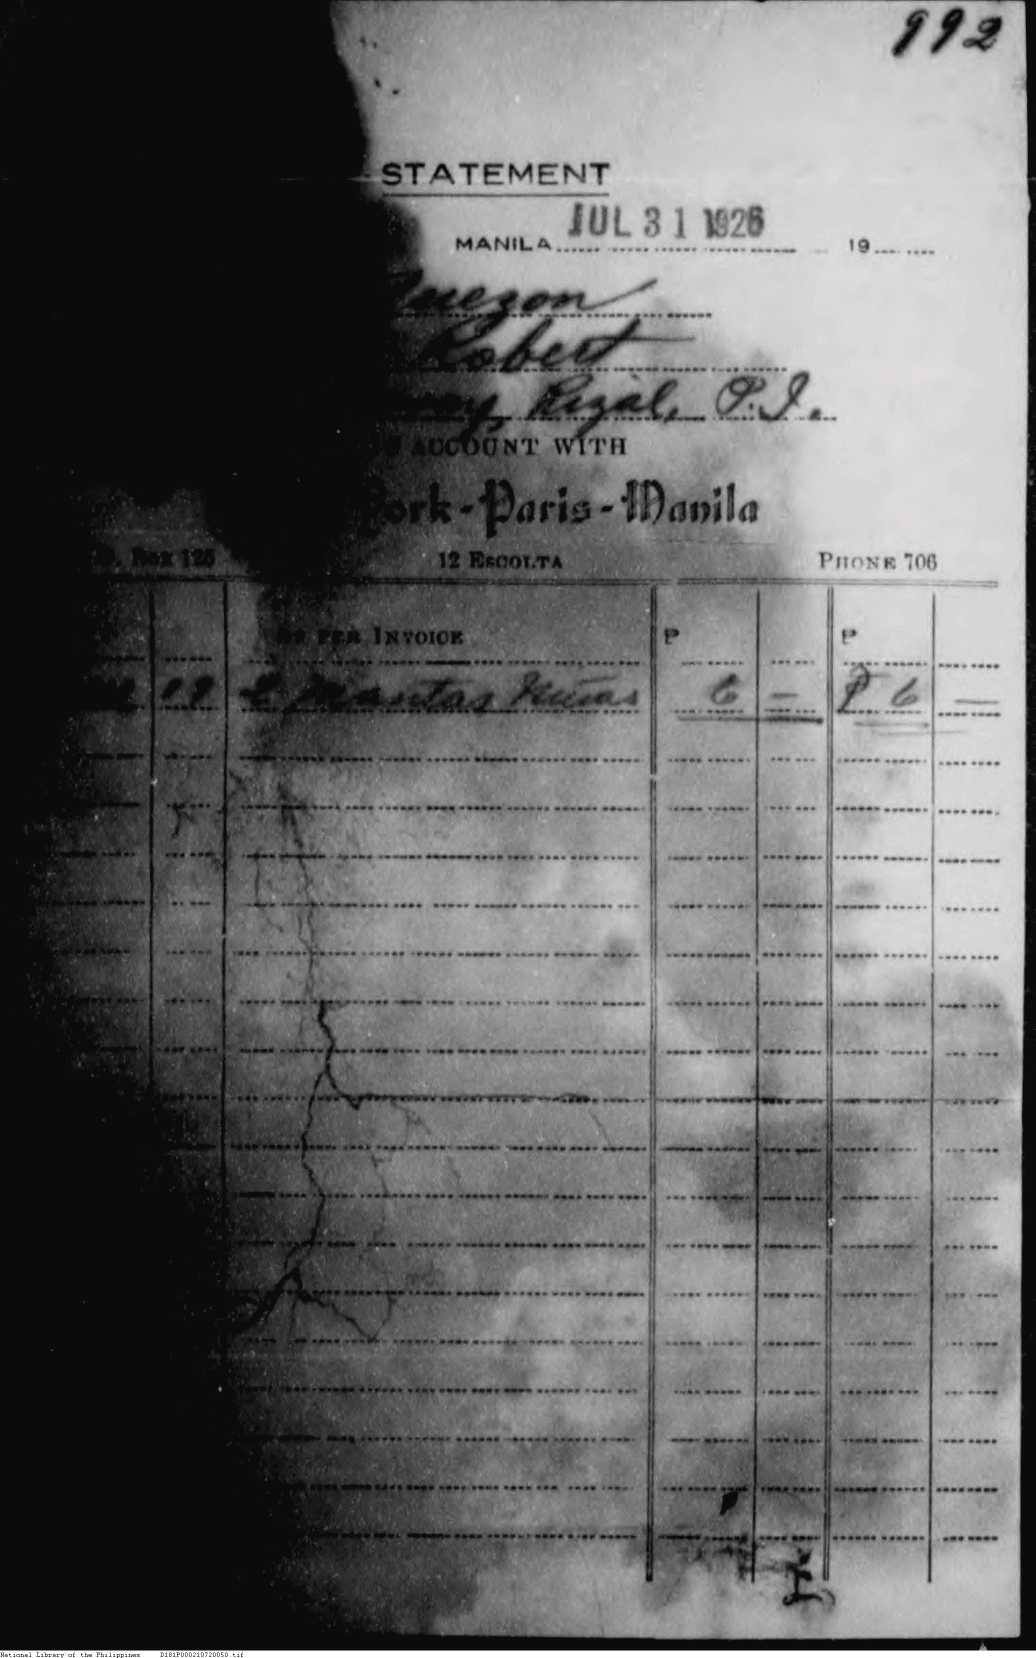 992
STATEMENT
JUL 31 1926
MANILA 19
Quezon
Robert
Rizal, P.I.
ACCOUNT WITH
ork-Paris-Manila
Box 125 12 ESCOLTA PHONE 706
AS PER INVOICE P P
2 Mantas 6 — ₱ 6 —
National Library of the Philippines D181P000210720050.tif